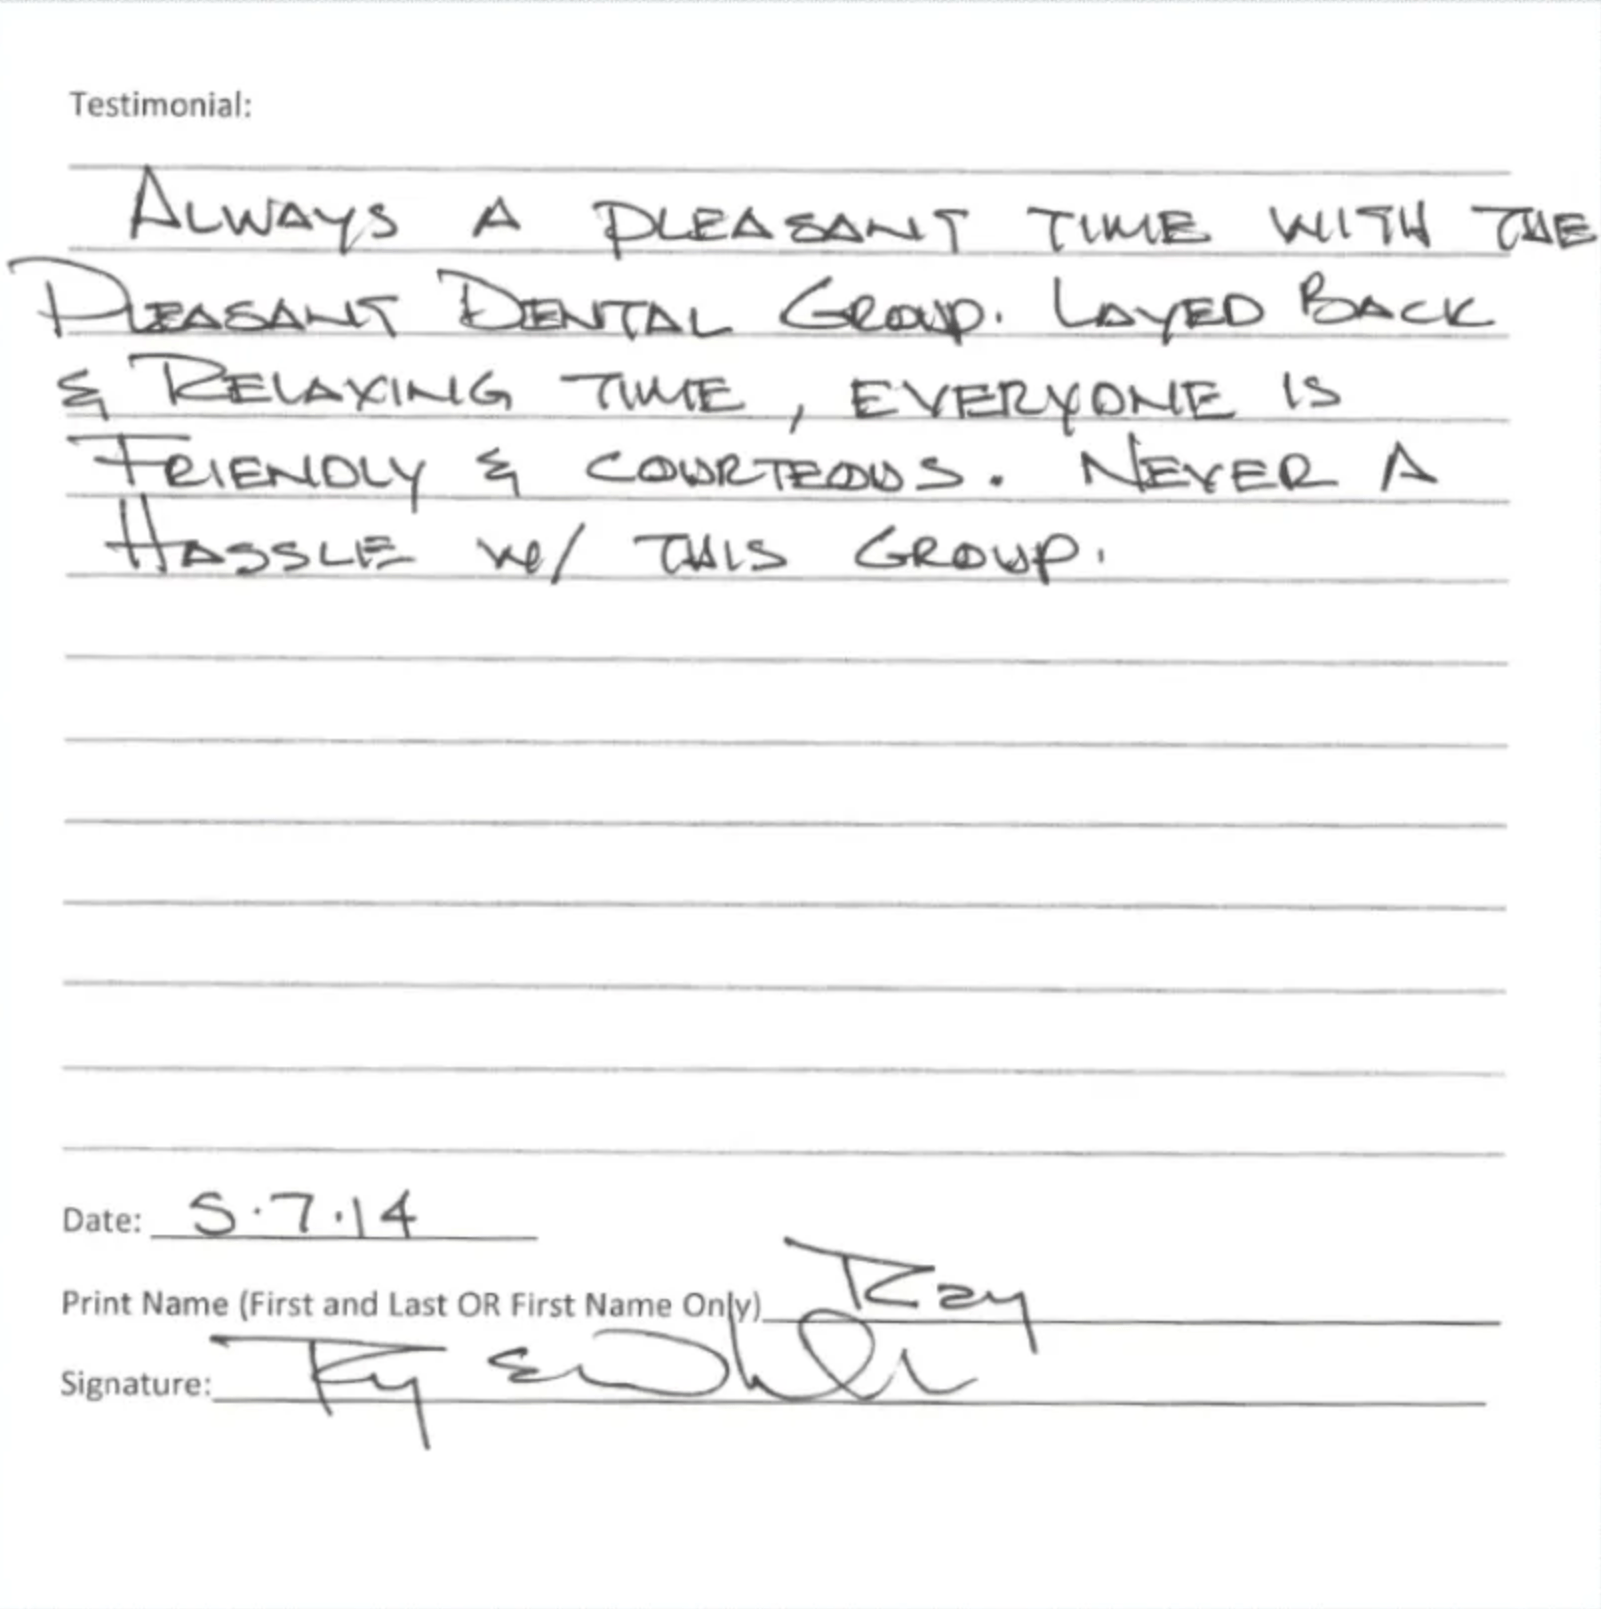 Testimonial:
ALWAYS A PLEASANT TIME WITH THE
PLEASANT DENTAL GROUP. LAYED BACK
& RELAXING TIME, EVERYONE IS
FRIENDLY & COURTEOUS. NEVER A
HASSLE w/ THIS GROUP.
Date: 5.7.14
Print Name (First and Last OR First Name Only) Ray
Signature: Ray